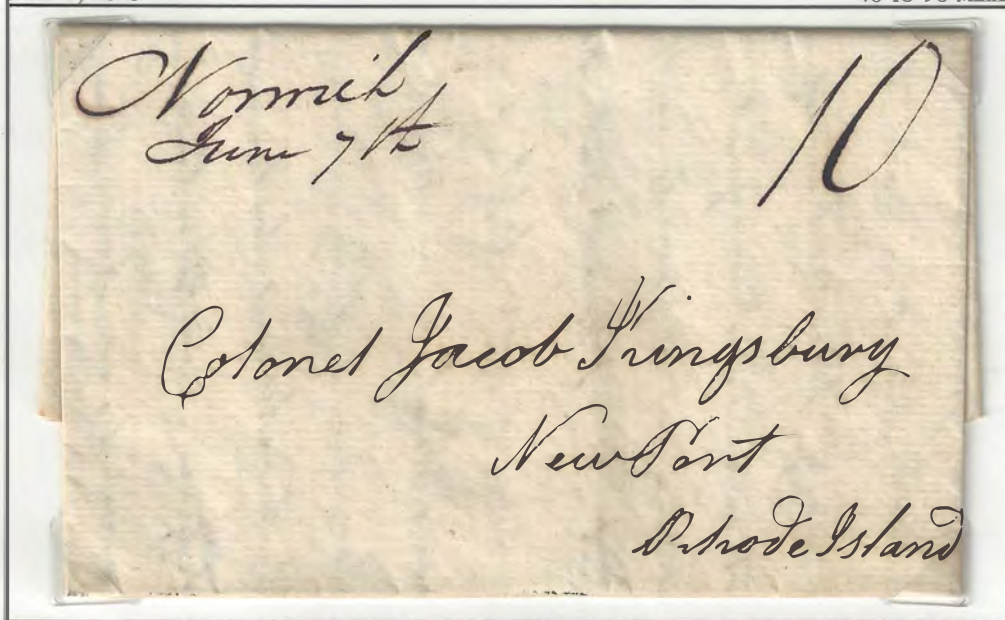 Norwich
June 7th
10
Colonel Jacob Kingsbury
New Port
Rhode Island